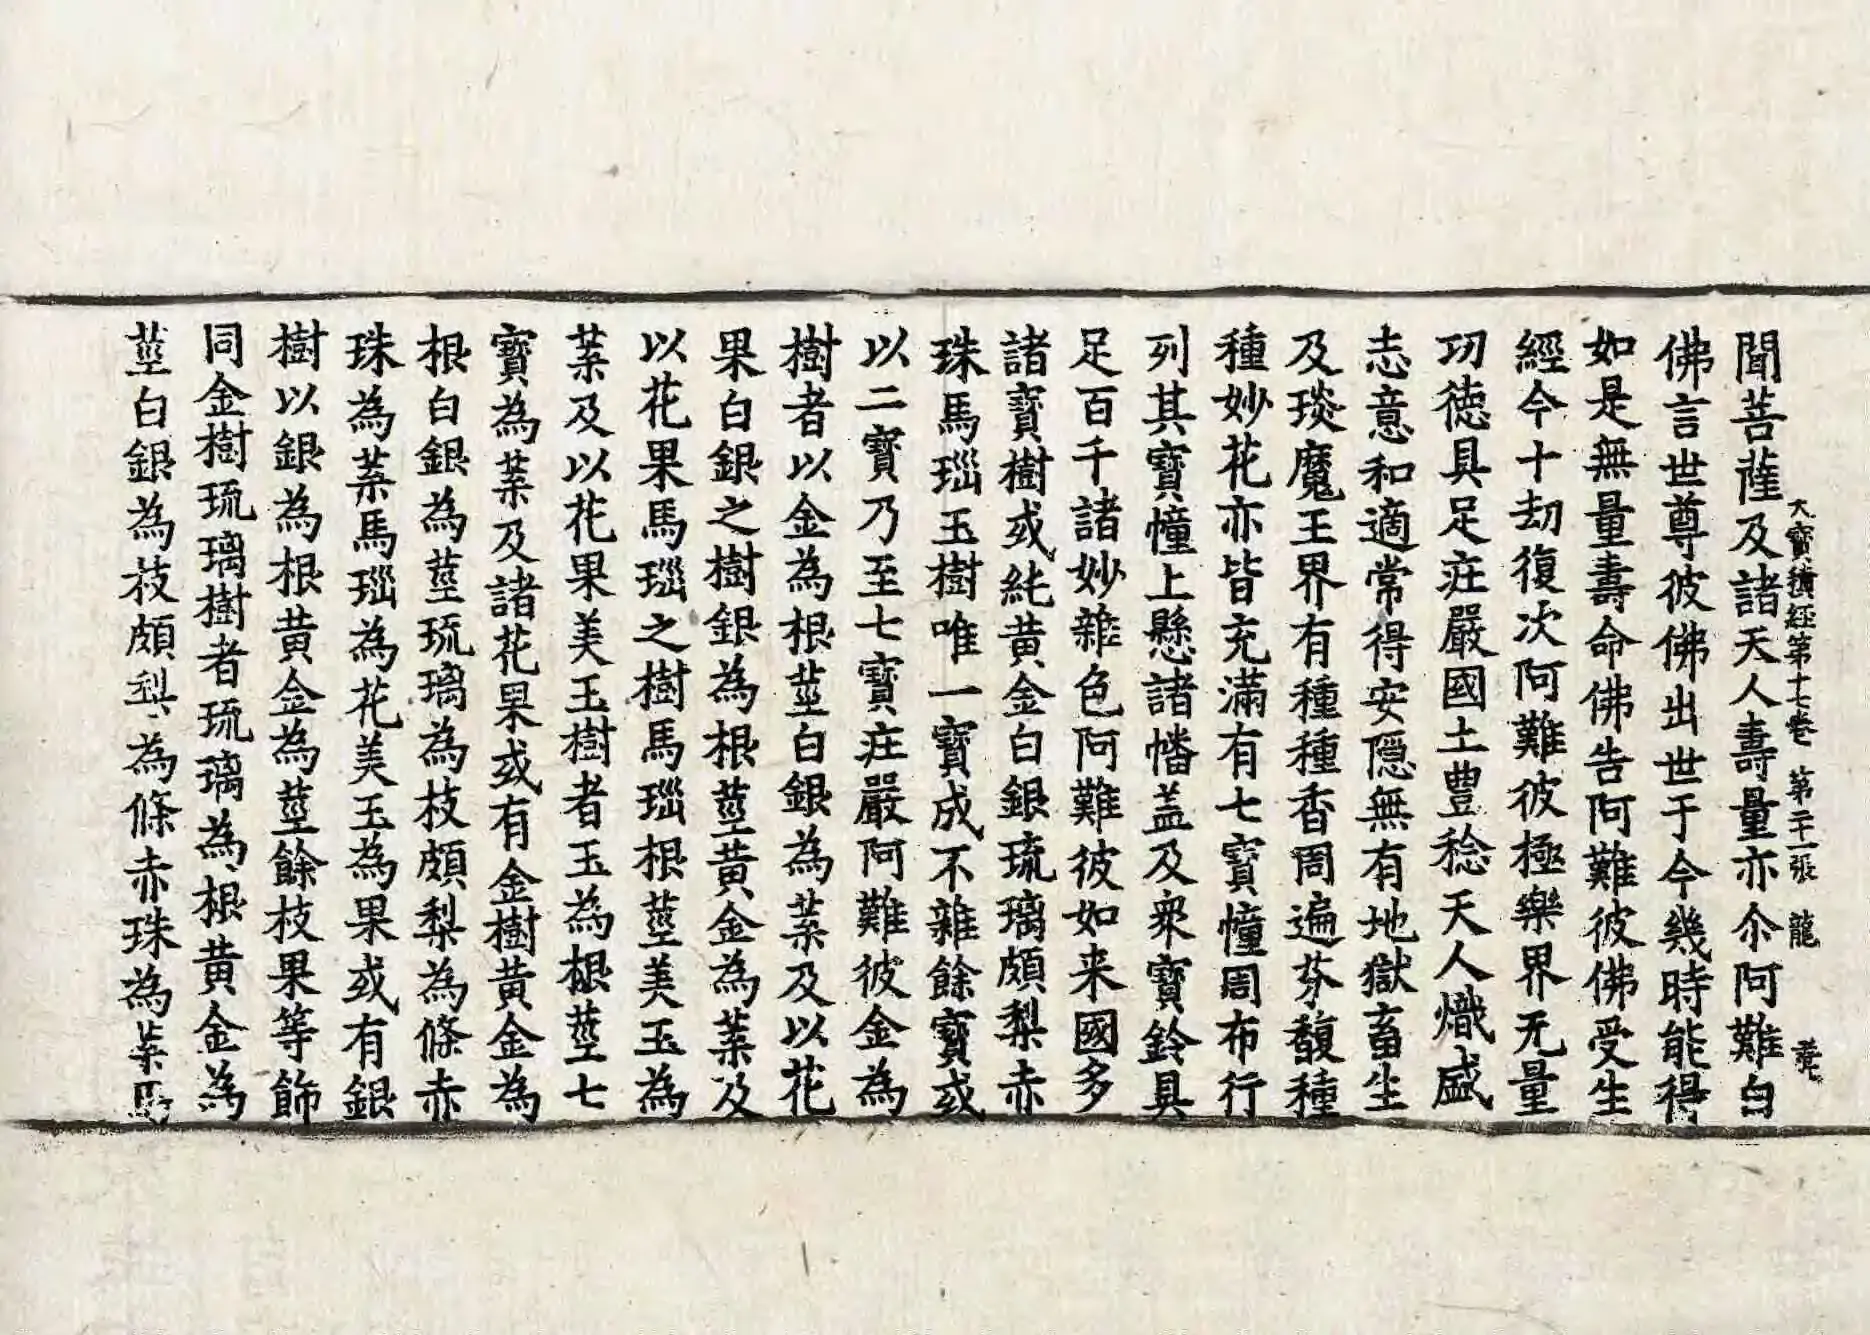 大寶積經第十七卷 第二十一張 龍
聞菩薩及諸天人壽量亦尒阿難白
佛言世尊彼佛出世于今幾時能得
如是無量壽命佛告阿難彼佛受生
經今十劫復次阿難彼極樂界无量
功德具足庄嚴國土豊稔天人熾盛
志意和適常得安隱無有地獄畜生
及琰魔王界有種種香周遍芬馥種
種妙花亦皆充滿有七寶幢周布行
列其寶幢上懸諸幡盖及衆寶鈴具
足百千諸妙雜色阿難彼如来國多
諸寶樹或純黄金白銀琉璃頗梨赤
珠馬瑙玉樹唯一寶成不雜餘寶或
以二寶乃至七寶庄嚴阿難彼金為
樹者以金為根莖白銀為葉及以花
果白銀之樹銀為根莖黄金為葉及
以花果馬瑙之樹馬瑙根莖美玉為
葉及以花果美玉樹者玉為根莖七
寶為葉及諸花果或有金樹黄金為
根白銀為莖琉璃為枝頗梨為條赤
珠為葉馬瑙為花美玉為果或有銀
樹以銀為根黄金為莖餘枝果等飾
同金樹琉璃樹者琉璃為根黄金為
莖白銀為枝頗梨為條赤珠為葉馬